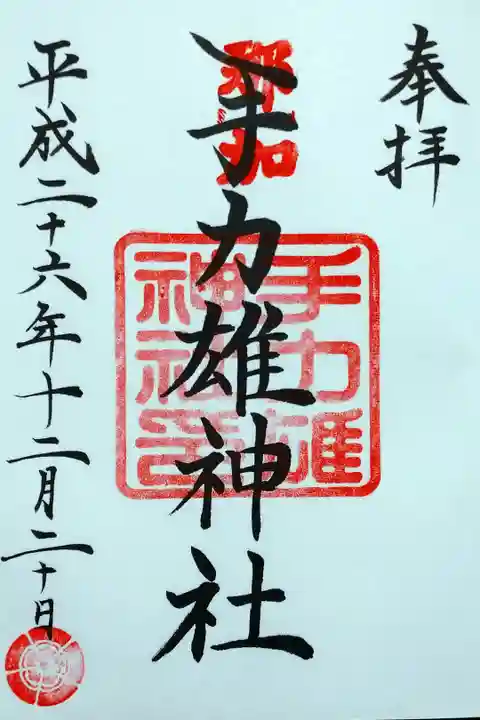 奉拝
那加
手力雄神社
手力雄
神社
平成二十六年十二月二十日